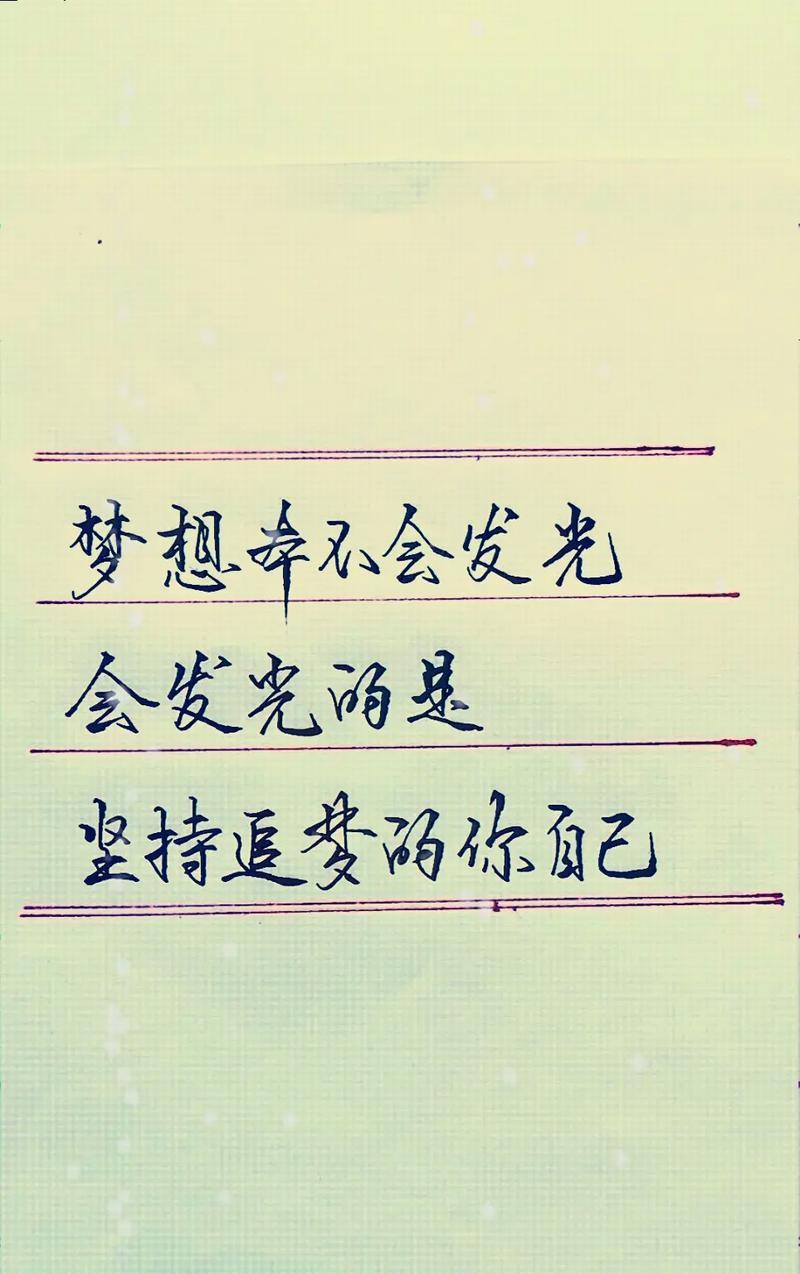 梦想本不会发光
会发光的是
坚持追梦的你自己